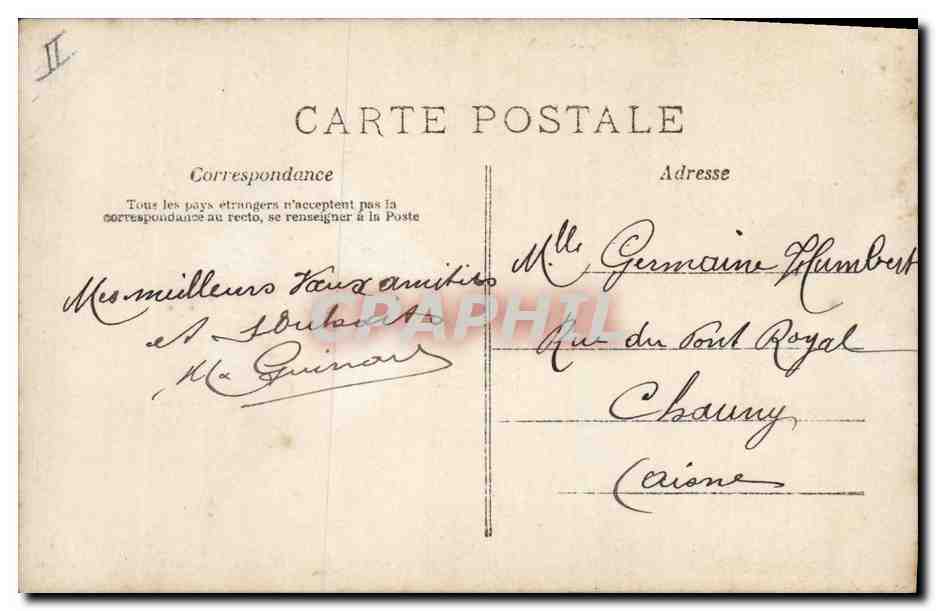 II
CARTE POSTALE
Correspondance
Tous les pays étrangers n'acceptent pas la
correspondance au recto, se renseigner à la Poste
Mes meilleurs Vœux amitiés
et souhaits
Guinard
Adresse
Mlle Germaine Humbert
Rue du Pont Royal
Chauny
(aisne
CPAPHIL